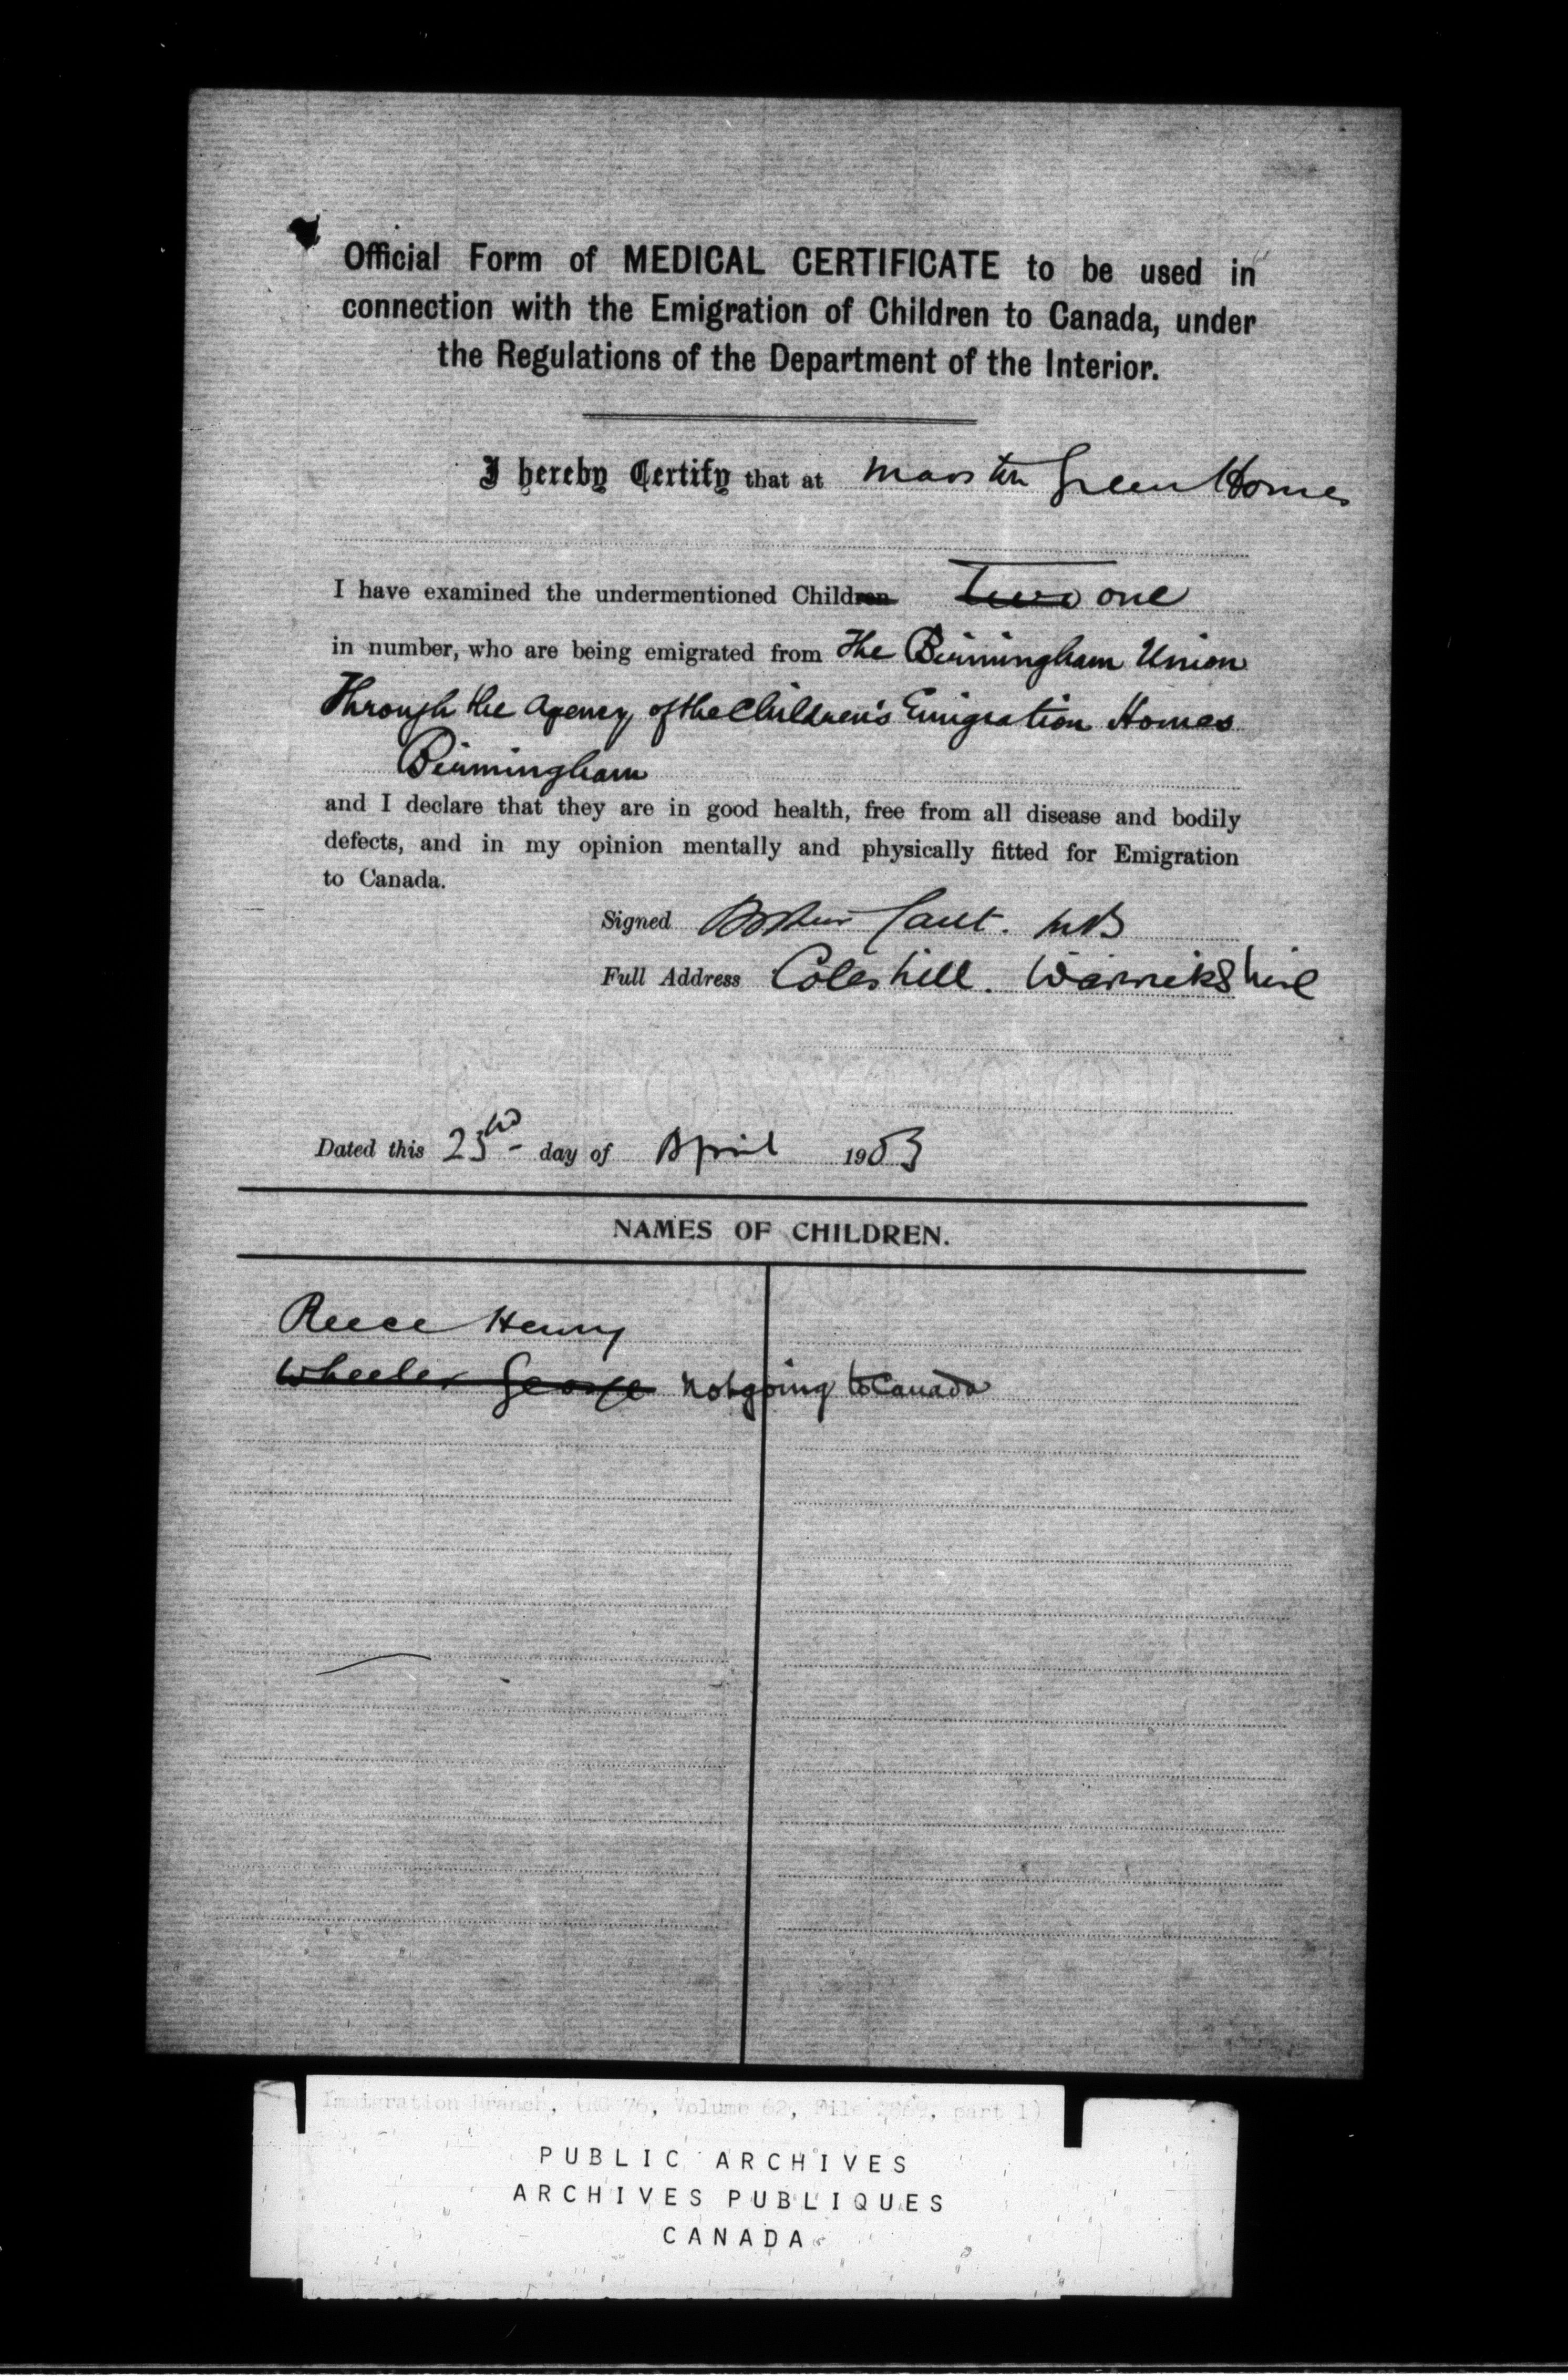 Official Form of MEDICAL CERTIFICATE to be used in
connection with the Emigration of Children to Canada, under
the Regulations of the Department of the Interior.
I hereby Certify that at Marston Green Homes
I have examined the undermentioned Children two one
in number, who are being emigrated from The Birmingham Union
Through the Agency of the Children's Emigration Homes
Birmingham
and I declare that they are in good health, free from all disease and bodily
defects, and in my opinion mentally and physically fitted for Emigration
to Canada.
Signed MB
Full Address Coleshill. Warwickshire
Dated this day of April 1903
NAMES OF CHILDREN.
Reece Henry
Wheeler George Not going to Canada
Immigration Branch, (RG 76, Volume 62, File 2869, part 1)
PUBLIC ARCHIVES
ARCHIVES PUBLIQUES
CANADA